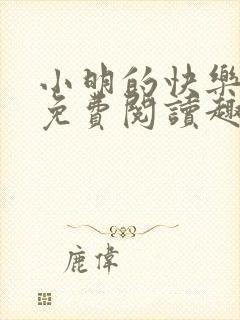 小明的快樂
免費閱讀趣
鹿偉